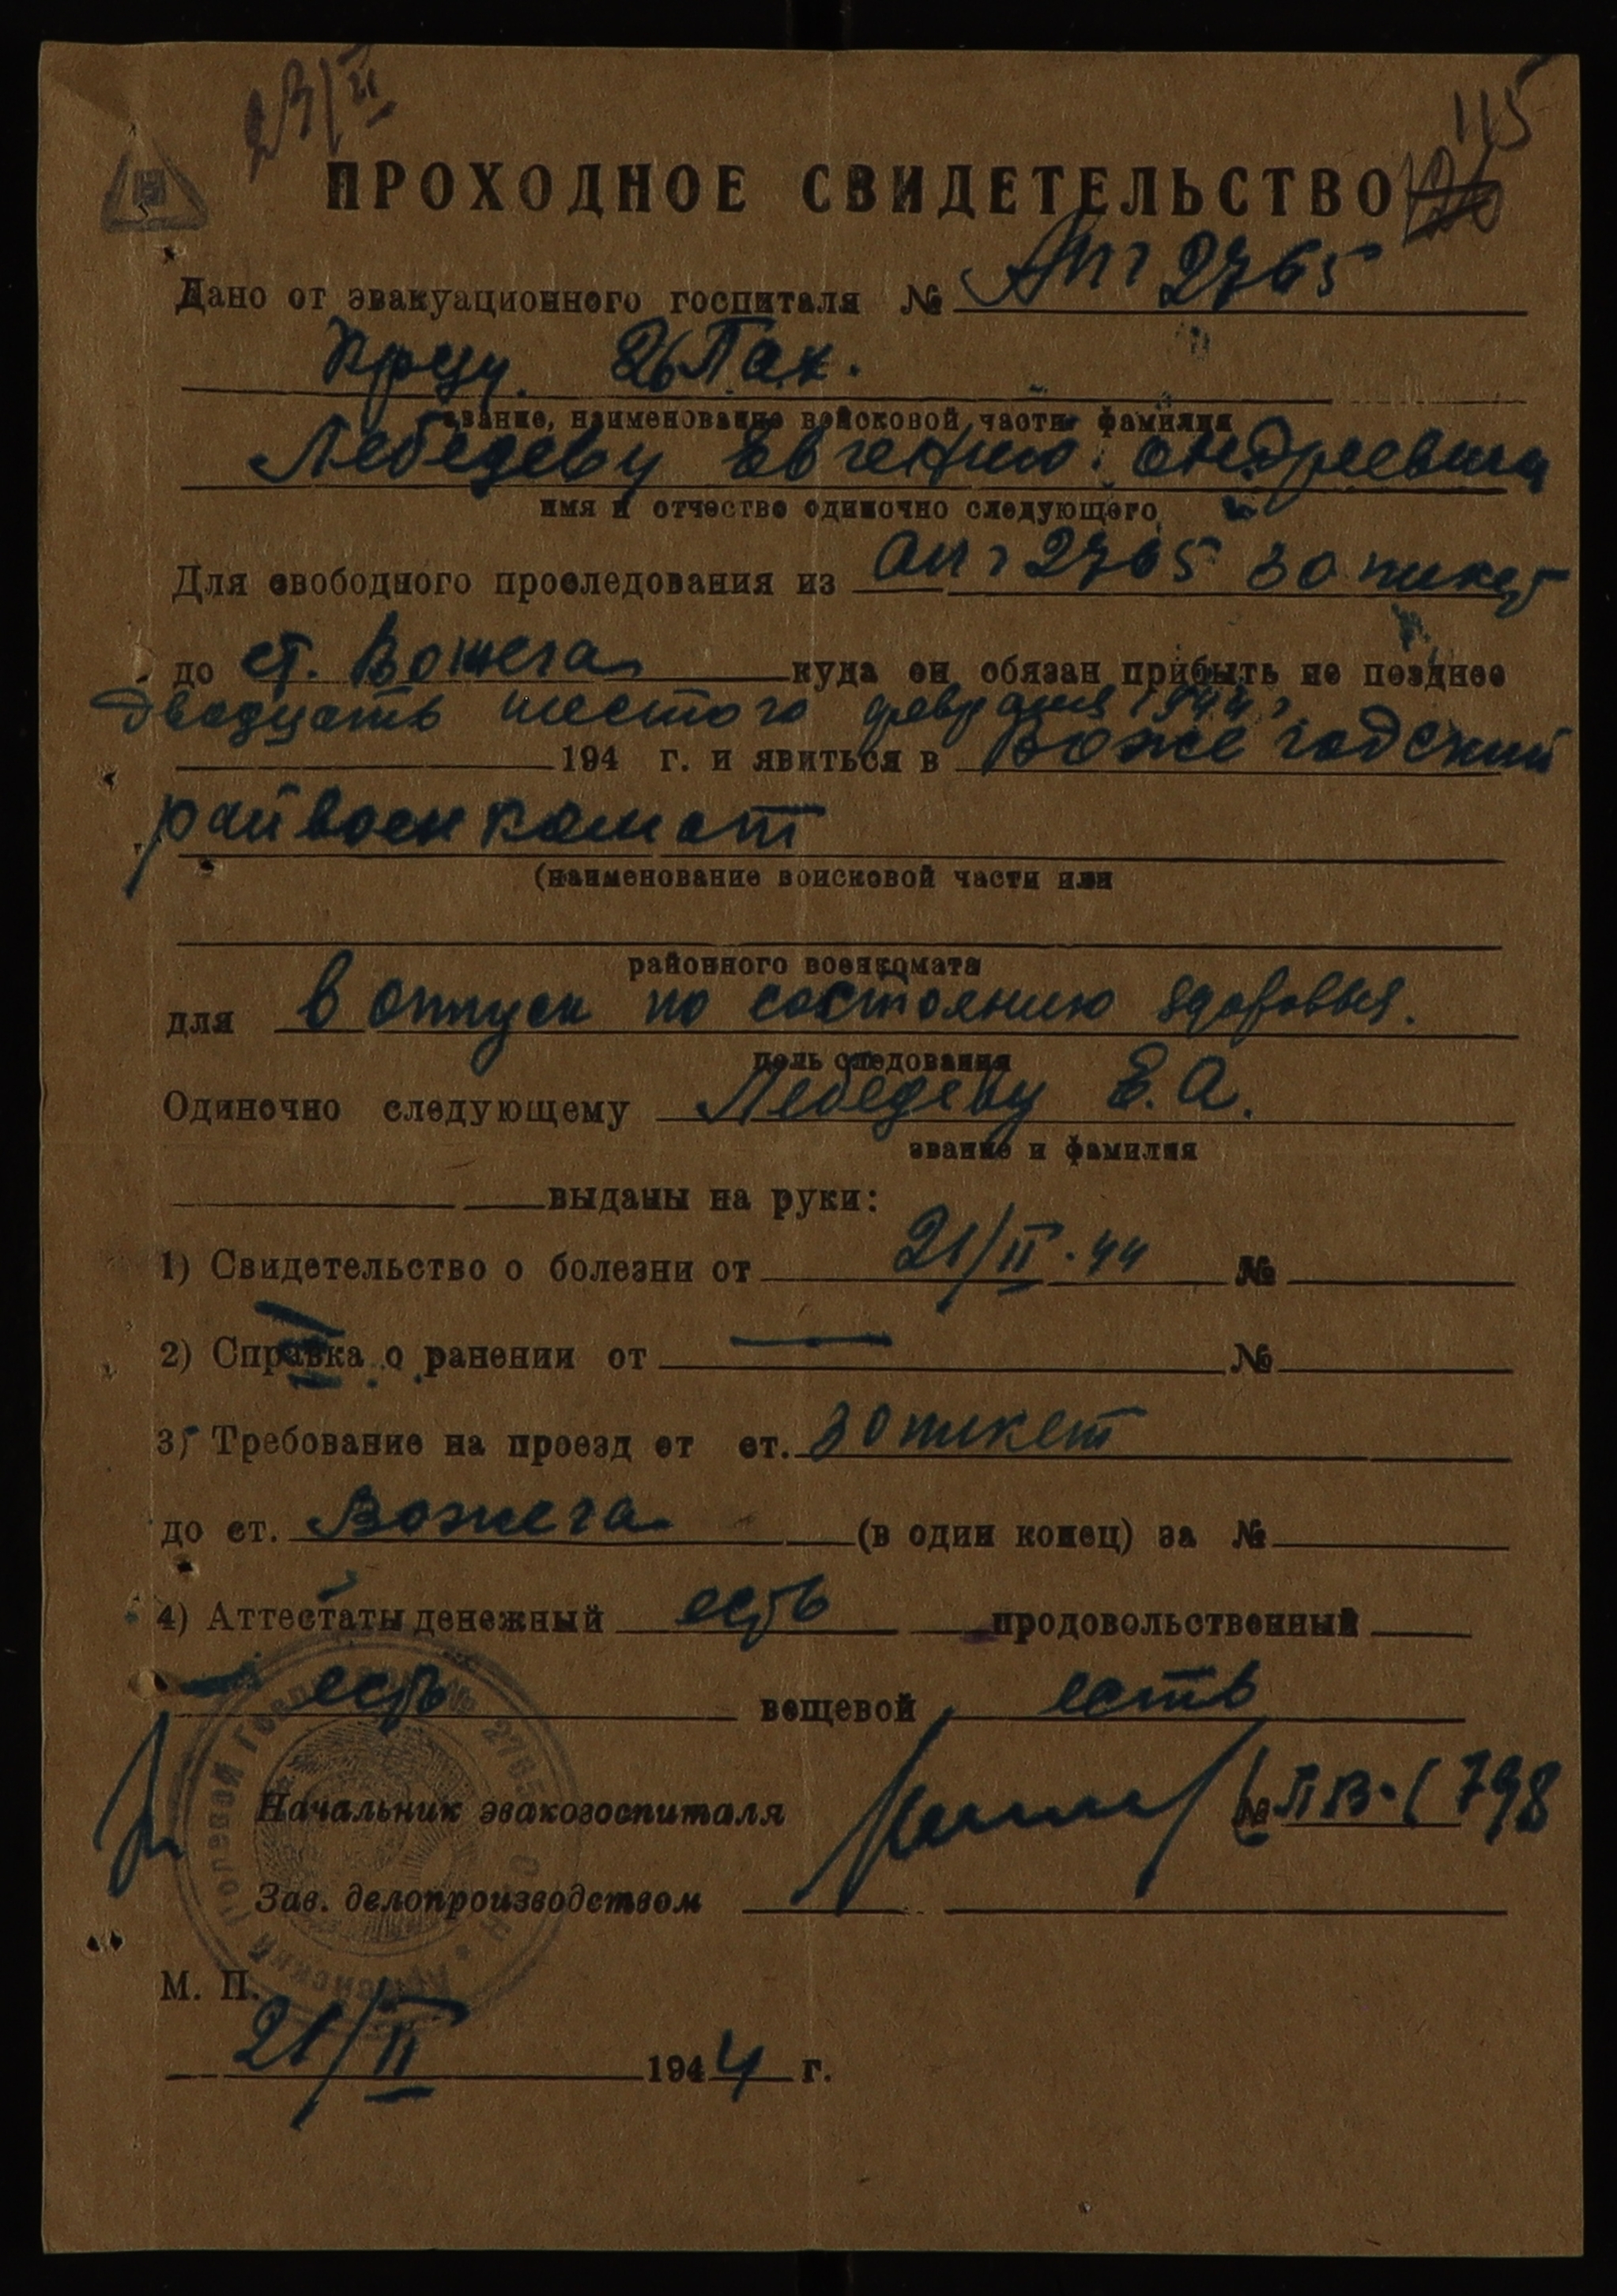 23/II
115
Н
ПРОХОДНОЕ СВИДЕТЕЛЬСТВО
Дано от эвакуационного госпиталя № АПГ 2765
Кр-цу 26 Пак.
звание, наименование войсковой части фамилия
Лебедеву Евгению Андреевичу
имя и отчество одиночно следующего
Для свободного проследования из АПГ 2765 30 пикет
до ст. Вожега куда он обязан прибыть не позднее
двадцать шестого февраля 1944 г
194 г. и явиться в Вожегодский
райвоенкомат
(наименование войсковой части или
районного военкомата
для в отпуск по состоянию здоровья.
цель следования
Одиночно следующему Лебедеву Е. А.
звание и фамилия
выданы на руки:
1) Свидетельство о болезни от 21/II.44 №
2) Справка о ранении от — №
3) Требование на проезд от ст. 30 пикет
до ст. Вожега (в один конец) за №
4) Аттестаты денежный есть продовольственный
есть вещевой есть
Начальник эвакогоспиталя № ПВ-1798
Зав. делопроизводством
М. П.
21/II 1944 г.